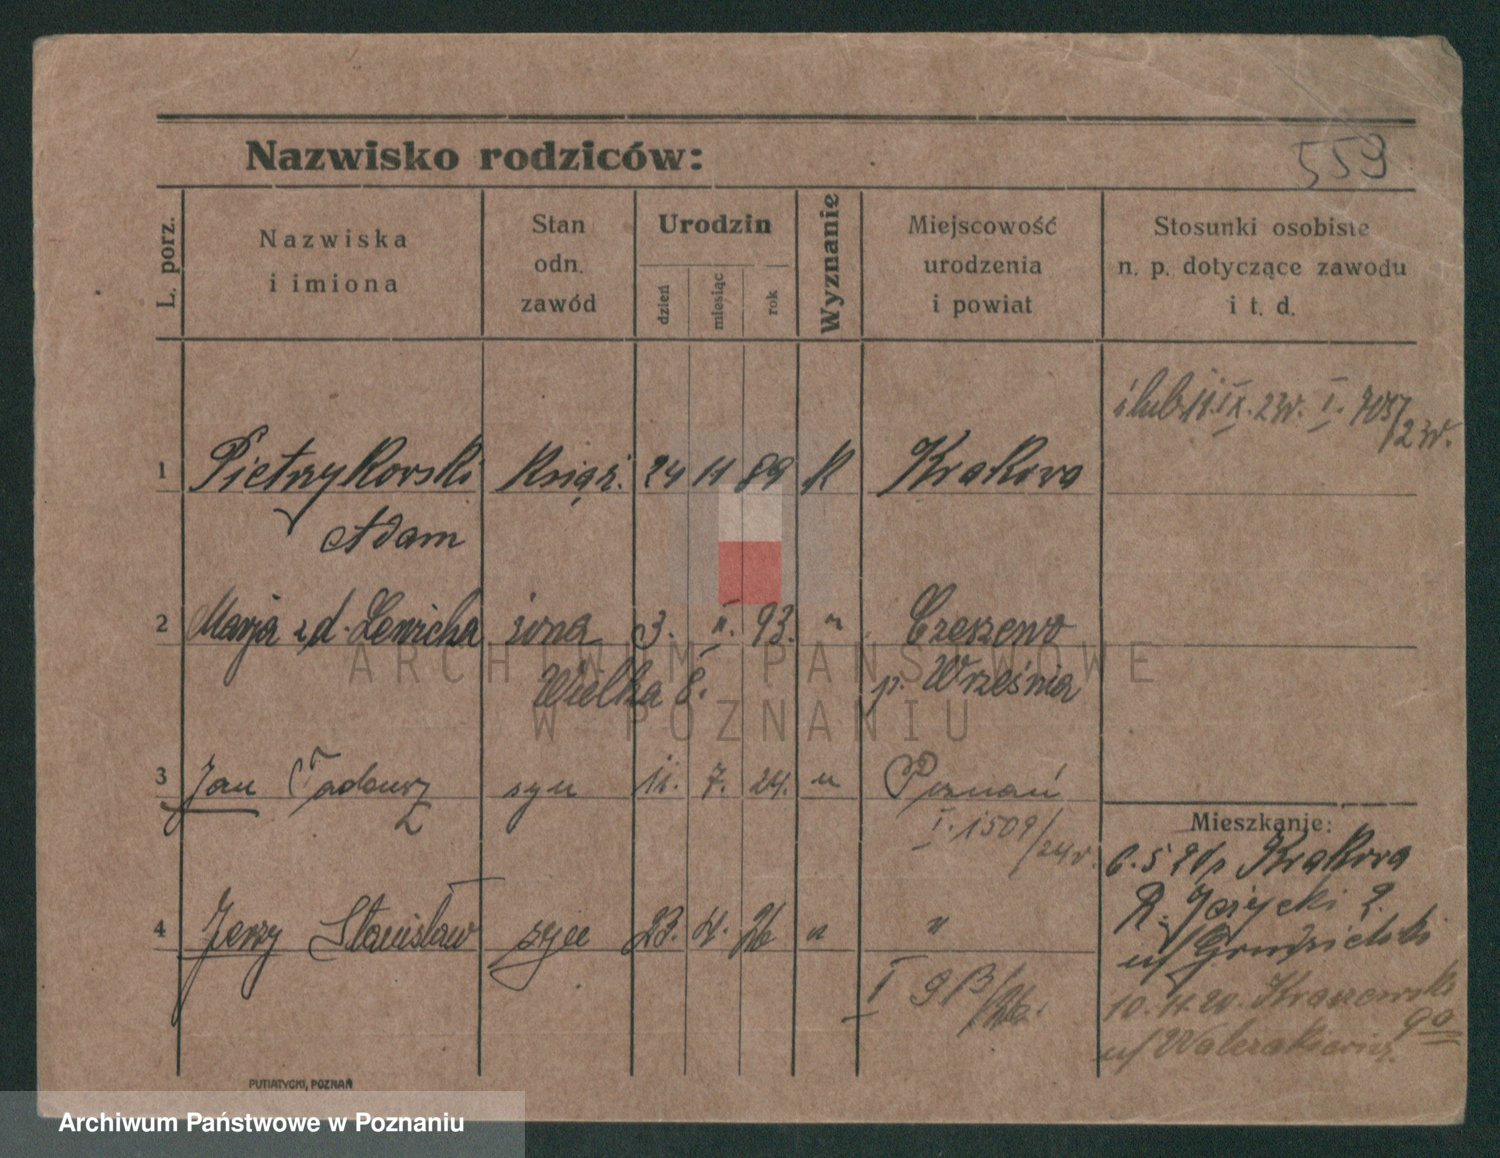 Nazwisko rodziców:
559
L. porz.
Nazwiska
i imiona
Stan
odn.
zawód
Urodzin
dzień
miesiąc
rok
Wyznanie
Miejscowość
urodzenia
i powiat
Stosunki osobiste
n. p. dotyczące zawodu
i t. d.
ślub 11. IX. 23r. I. 705/23r.
1 Pietrzykowski Książ. 24 11 89 K Krakowa
Adam
2 Marja z d. Lewicka żona 3. II. 93. " Czeszewo
Wielka 8. p. Września
3 Jan Tadeusz syn 11. 7. 24. " Poznań
I. 1509/24r.
Mieszkanie:
6.5 20 Krakowa
R. Jeżycki 2.
10. 11. 20. Kraszewski
ga
4 Jerzy Stanisław syn 23. 4. 26 " "
I 913/26.
ARCHIWUM PAŃSTWOWE
W POZNANIU
PUTIATYCKI, POZNAŃ
Archiwum Państwowe w Poznaniu